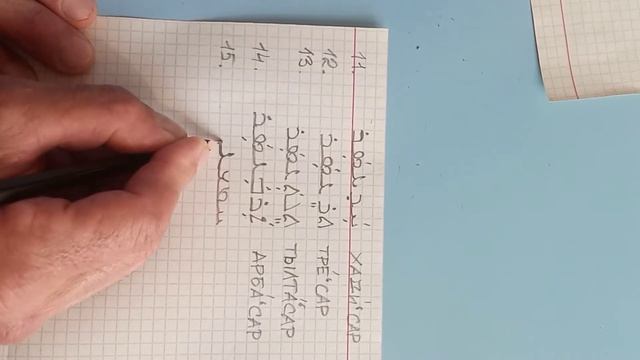 11. ܚܕܥܣܪ ХАДИ́ʿСАР
12. ܬܪܥܣܪ ТРЕ́ʿСАР
13. ܬܠܬܥܣܪ ТЫЛТА́ʿСАР
14. ܐܪܒܥܣܪ АРБА́ʿСАР
15.